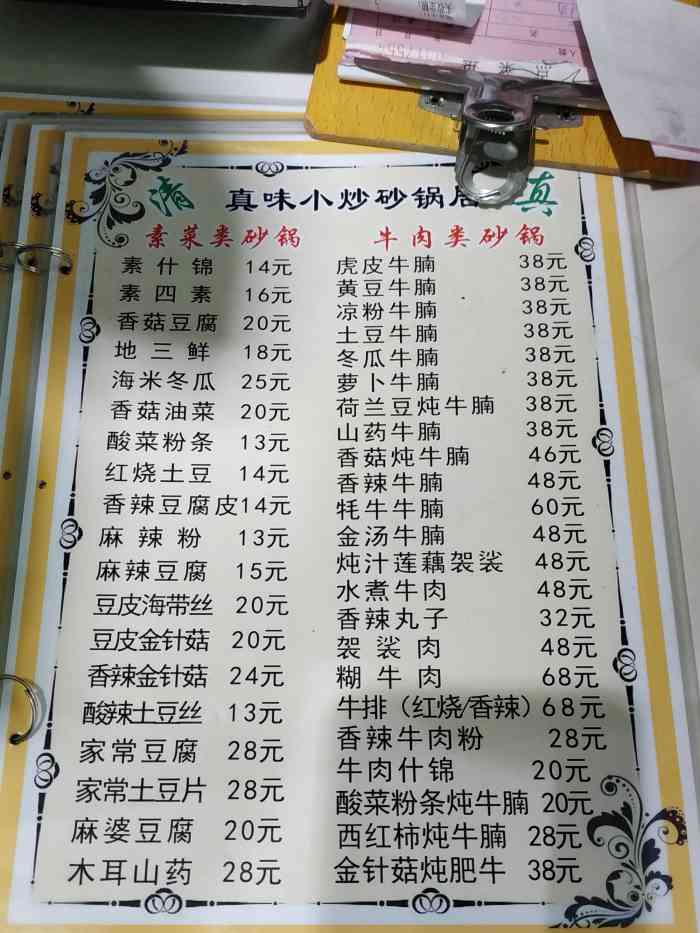 清 真味小炒砂锅居 真
素菜类砂锅
素什锦 14元
素四素 16元
香菇豆腐 20元
地三鲜 18元
海米冬瓜 25元
香菇油菜 20元
酸菜粉条 13元
红烧土豆 14元
香辣豆腐皮14元
麻辣粉 13元
麻辣豆腐 15元
豆皮海带丝 20元
豆皮金针菇 20元
香辣金针菇 24元
酸辣土豆丝 13元
家常豆腐 28元
家常土豆片 28元
麻婆豆腐 20元
木耳山药 28元
牛肉类砂锅
虎皮牛腩 38元
黄豆牛腩 38元
凉粉牛腩 38元
土豆牛腩 38元
冬瓜牛腩 38元
萝卜牛腩 38元
荷兰豆炖牛腩 38元
山药牛腩 38元
香菇炖牛腩 46元
香辣牛腩 48元
牦牛牛腩 60元
金汤牛腩 48元
炖汁莲藕袈裟 48元
水煮牛肉 48元
香辣丸子 32元
袈裟肉 48元
糊牛肉 68元
牛排（红烧/香辣）68元
香辣牛肉粉 28元
牛肉什锦 20元
酸菜粉条炖牛腩 20元
西红柿炖牛腩 28元
金针菇炖肥牛 38元